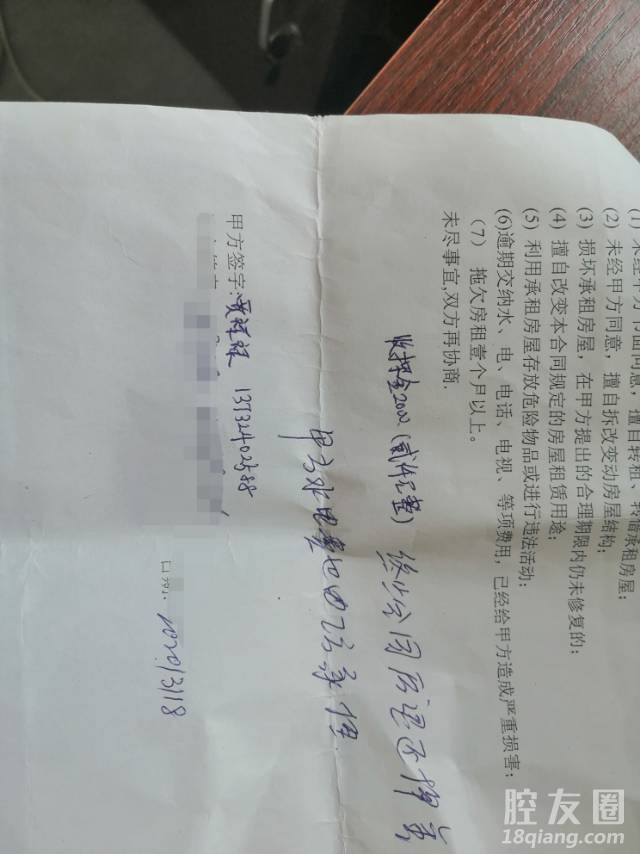 (1) 未经甲方书面同意，擅自转租、转借承租房屋；
(2) 未经甲方同意，擅自拆改变动房屋结构；
(3) 损坏承租房屋，在甲方提出的合理期限内仍未修复的；
(4) 擅自改变本合同规定的房屋租赁用途；
(5) 利用承租房屋存放危险物品或进行违法活动；
(6)逾期交纳水、电、电话、电视、等项费用，已经给甲方造成严重损害；
(7) 拖欠房租壹个月以上。
未尽事宜,双方再协商.
收押金2000（贰仟元整）终止合同后退还押金
甲方水电费由乙方承担.
甲方签字: 13732402588
日期:
腔友圈
18qiang.com